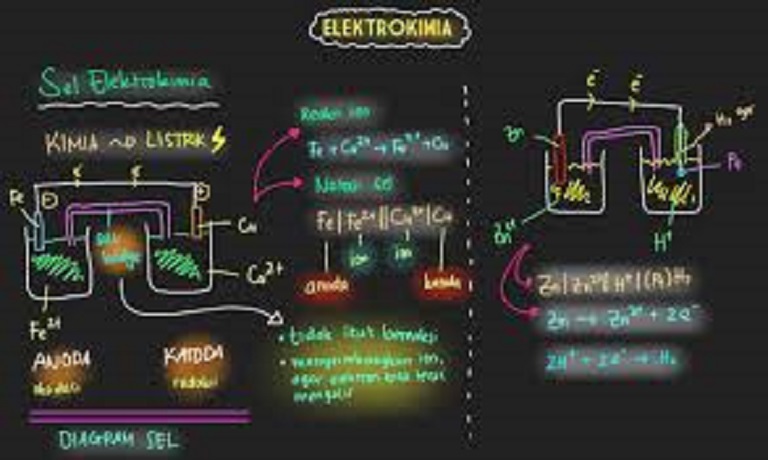 ELEKTROKIMIA
Sel Elektrokimia
KIMIA → LISTRIK
e⁻ e⁻
Fe
⊖
⊕
Cu
Cu²⁺
Fe²⁺
ANODA
KATODA
oksidasi
reduksi
DIAGRAM SEL
Reaksi ion
Fe + Cu²⁺ → Fe²⁺ + Cu
Notasi sel
Fe | Fe²⁺ || Cu²⁺ | Cu
ion ion
anoda
katoda
• tidak ikut bereaksi
• menyeimbangkan ion,
agar elektron bisa terus
mengalir
e⁻ e⁻
Zn
H₂
Pt
Zn²⁺
H⁺
Zn | Zn²⁺ || H⁺ | (Pt) H₂
Zn → Zn²⁺ + 2e⁻
2H⁺ + 2e⁻ → H₂